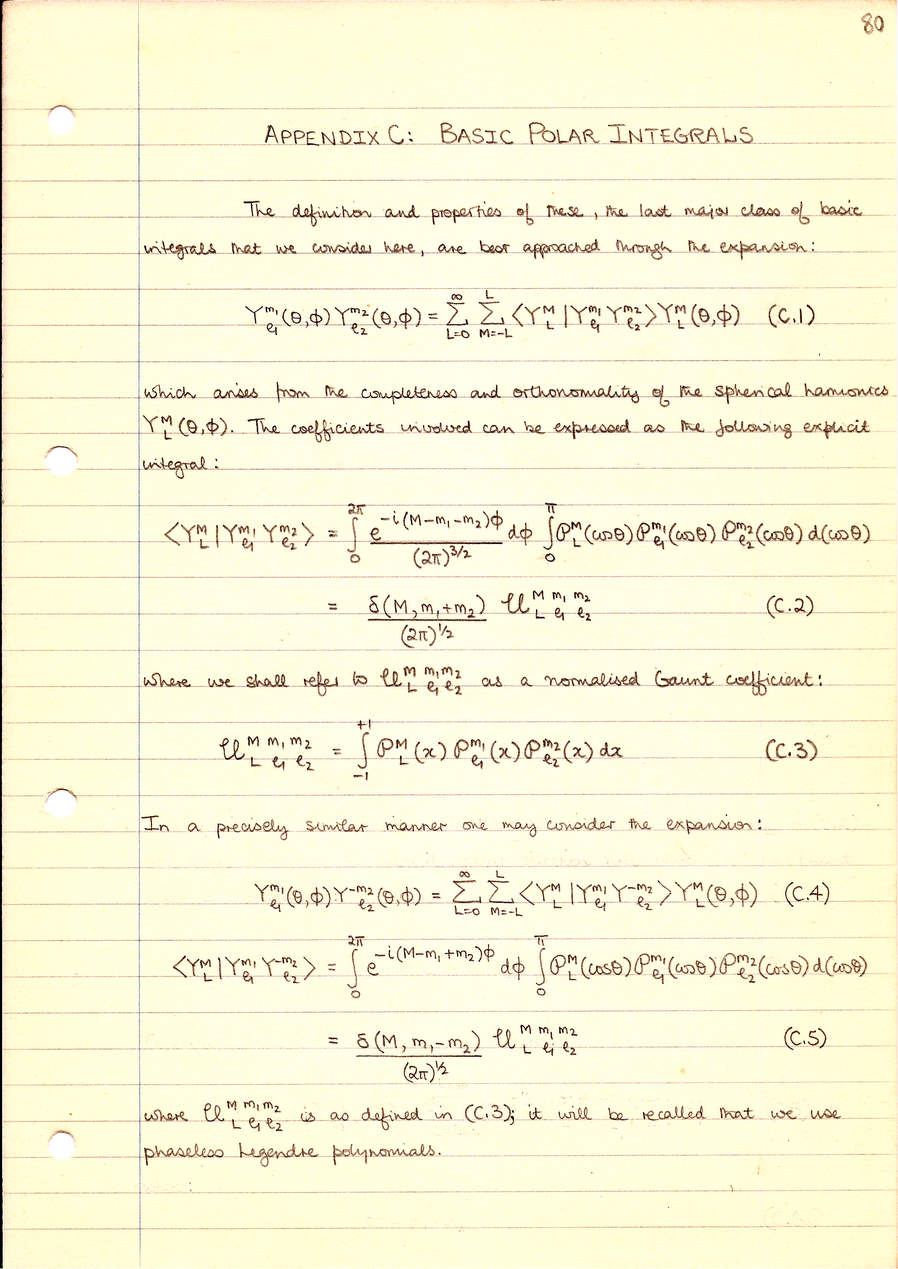 80
APPENDIX C: BASIC POLAR INTEGRALS
The definition and properties of these, the last major class of basic
integrals that we consider here, are best approached through the expansion:
Y_{l_1}^{m_1}(θ,φ) Y_{l_2}^{m_2}(θ,φ) = Σ_{L=0}^{∞} Σ_{M=-L}^{L} ⟨Y_L^M | Y_{l_1}^{m_1} Y_{l_2}^{m_2}⟩ Y_L^M(θ,φ) (C.1)
which arises from the completeness and orthonormality of the spherical harmonics
Y_L^M(θ,φ). The coefficients involved can be expressed as the following explicit
integral:
⟨Y_L^M | Y_{l_1}^{m_1} Y_{l_2}^{m_2}⟩ = ∫_0^{2π} e^{-i(M-m_1-m_2)φ}/(2π)^{3/2} dφ ∫_0^π P_L^M(cosθ) P_{l_1}^{m_1}(cosθ) P_{l_2}^{m_2}(cosθ) d(cosθ)
= δ(M, m_1+m_2)/(2π)^{1/2} U_{L l_1 l_2}^{M m_1 m_2} (C.2)
where we shall refer to U_{L l_1 l_2}^{M m_1 m_2} as a normalised Gaunt coefficient:
U_{L l_1 l_2}^{M m_1 m_2} = ∫_{-1}^{+1} P_L^M(x) P_{l_1}^{m_1}(x) P_{l_2}^{m_2}(x) dx (C.3)
In a precisely similar manner one may consider the expansion:
Y_{l_1}^{m_1}(θ,φ) Y_{l_2}^{-m_2}(θ,φ) = Σ_{L=0}^{∞} Σ_{M=-L}^{L} ⟨Y_L^M | Y_{l_1}^{m_1} Y_{l_2}^{-m_2}⟩ Y_L^M(θ,φ) (C.4)
⟨Y_L^M | Y_{l_1}^{m_1} Y_{l_2}^{-m_2}⟩ = ∫_0^{2π} e^{-i(M-m_1+m_2)φ} dφ ∫_0^π P_L^M(cosθ) P_{l_1}^{m_1}(cosθ) P_{l_2}^{m_2}(cosθ) d(cosθ)
= δ(M, m_1-m_2)/(2π)^{1/2} U_{L l_1 l_2}^{M m_1 m_2} (C.5)
where U_{L l_1 l_2}^{M m_1 m_2} is as defined in (C.3); it will be recalled that we use
phaseless Legendre polynomials.